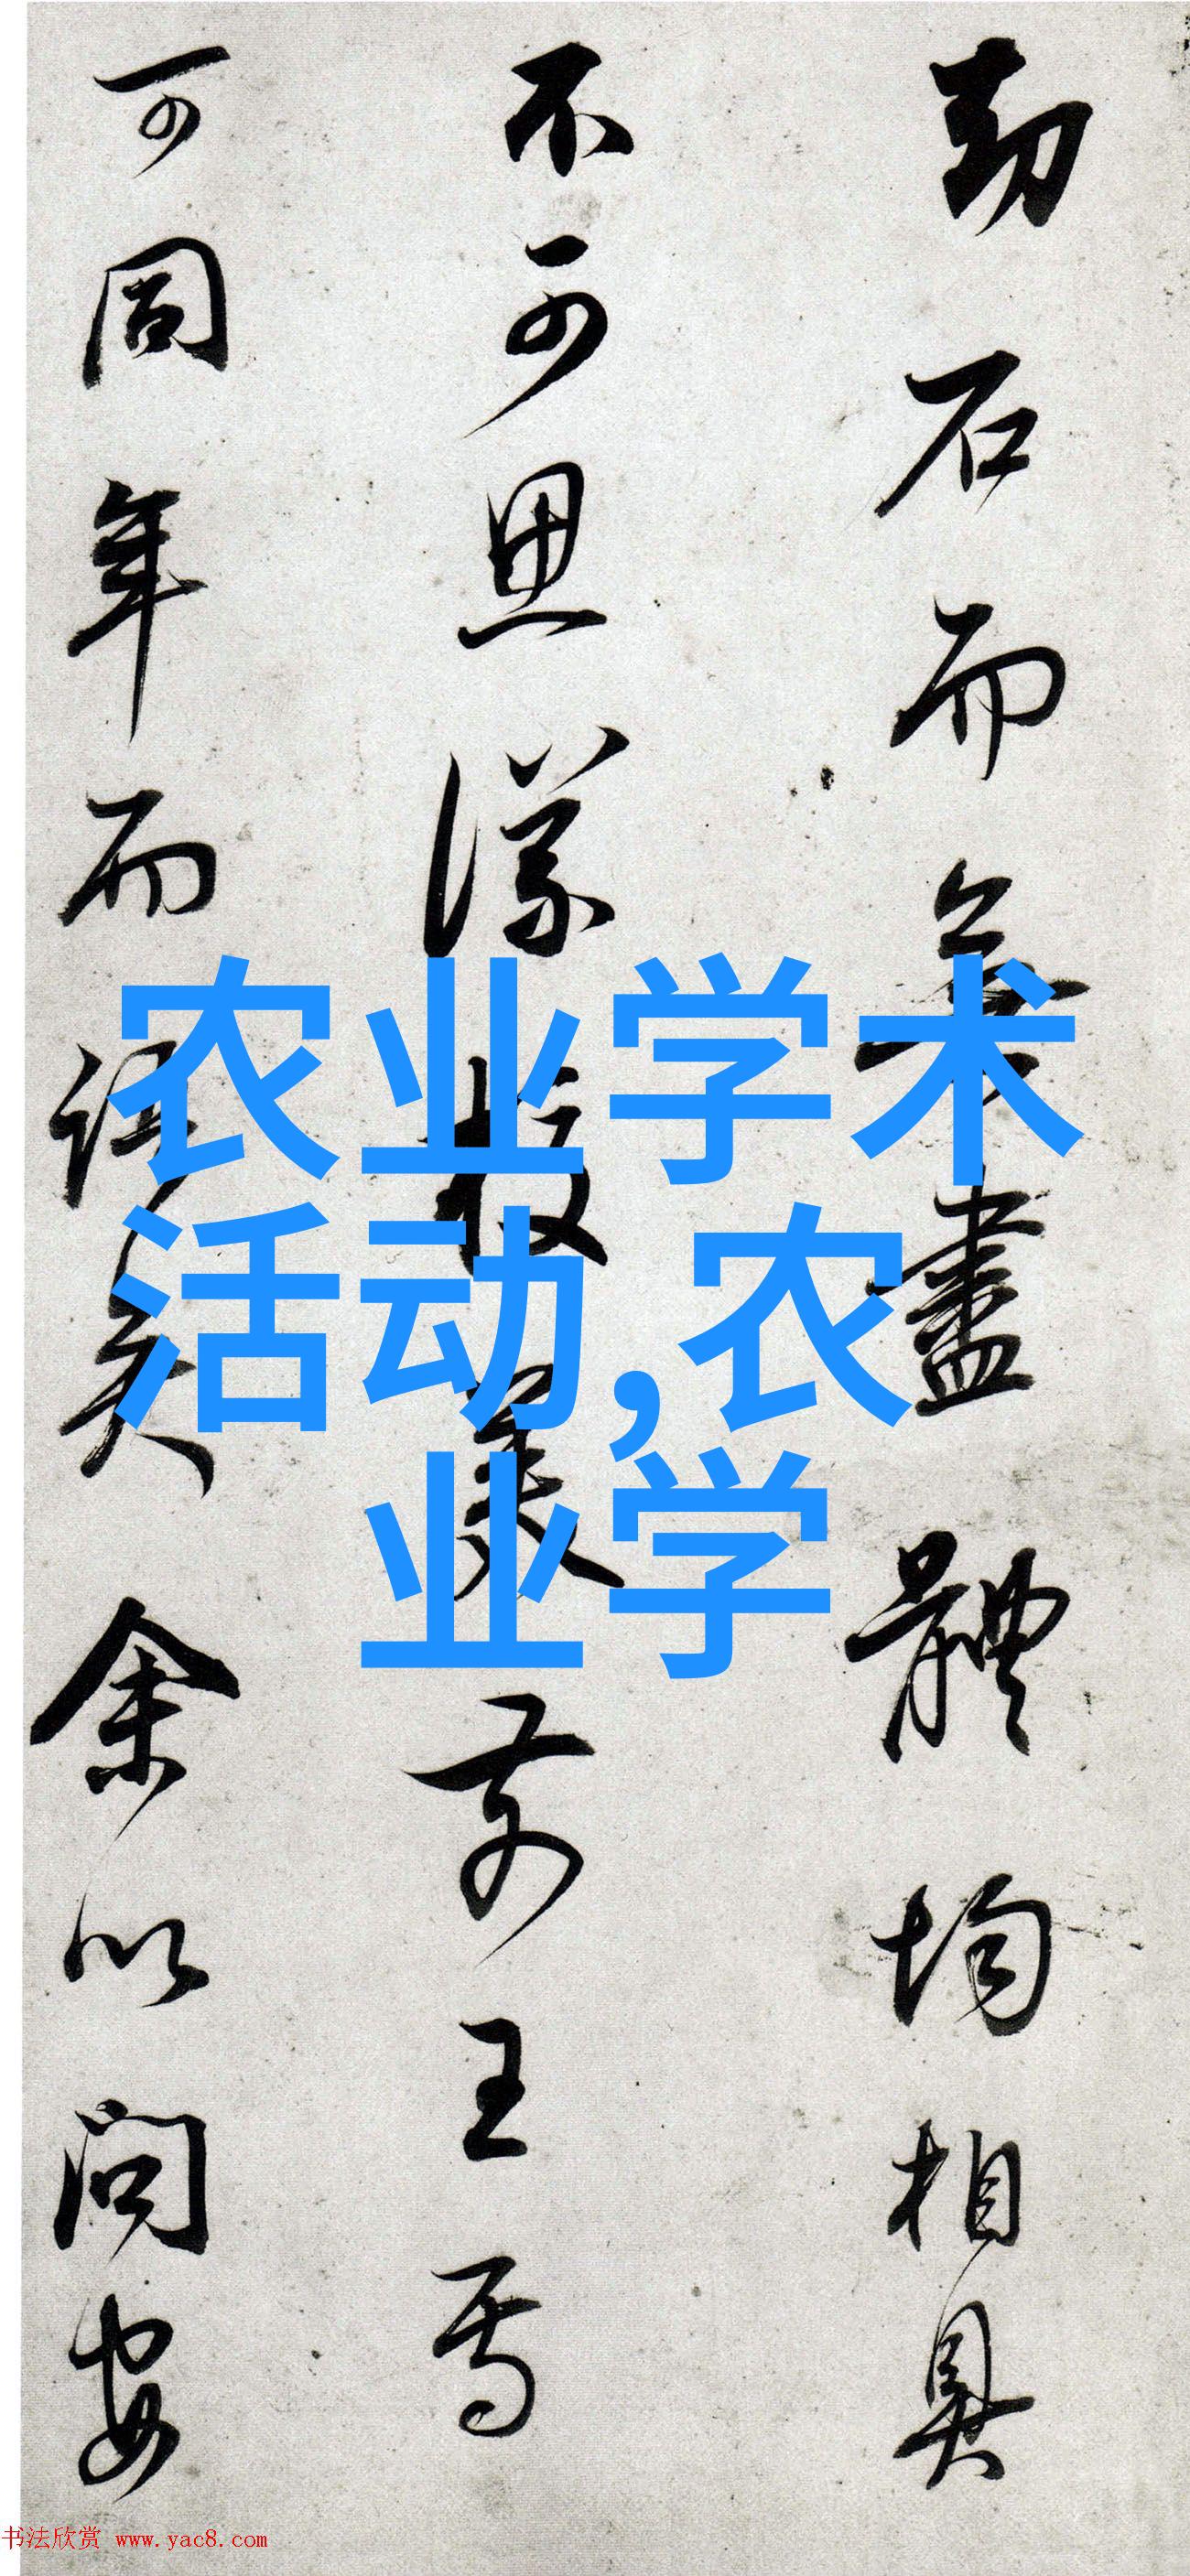 劫石而無盡體均相具
不可思議
前王焉
可同年而語矣余以問安
农业学术
活动,农
业学
书法欣赏 www.yac8.com